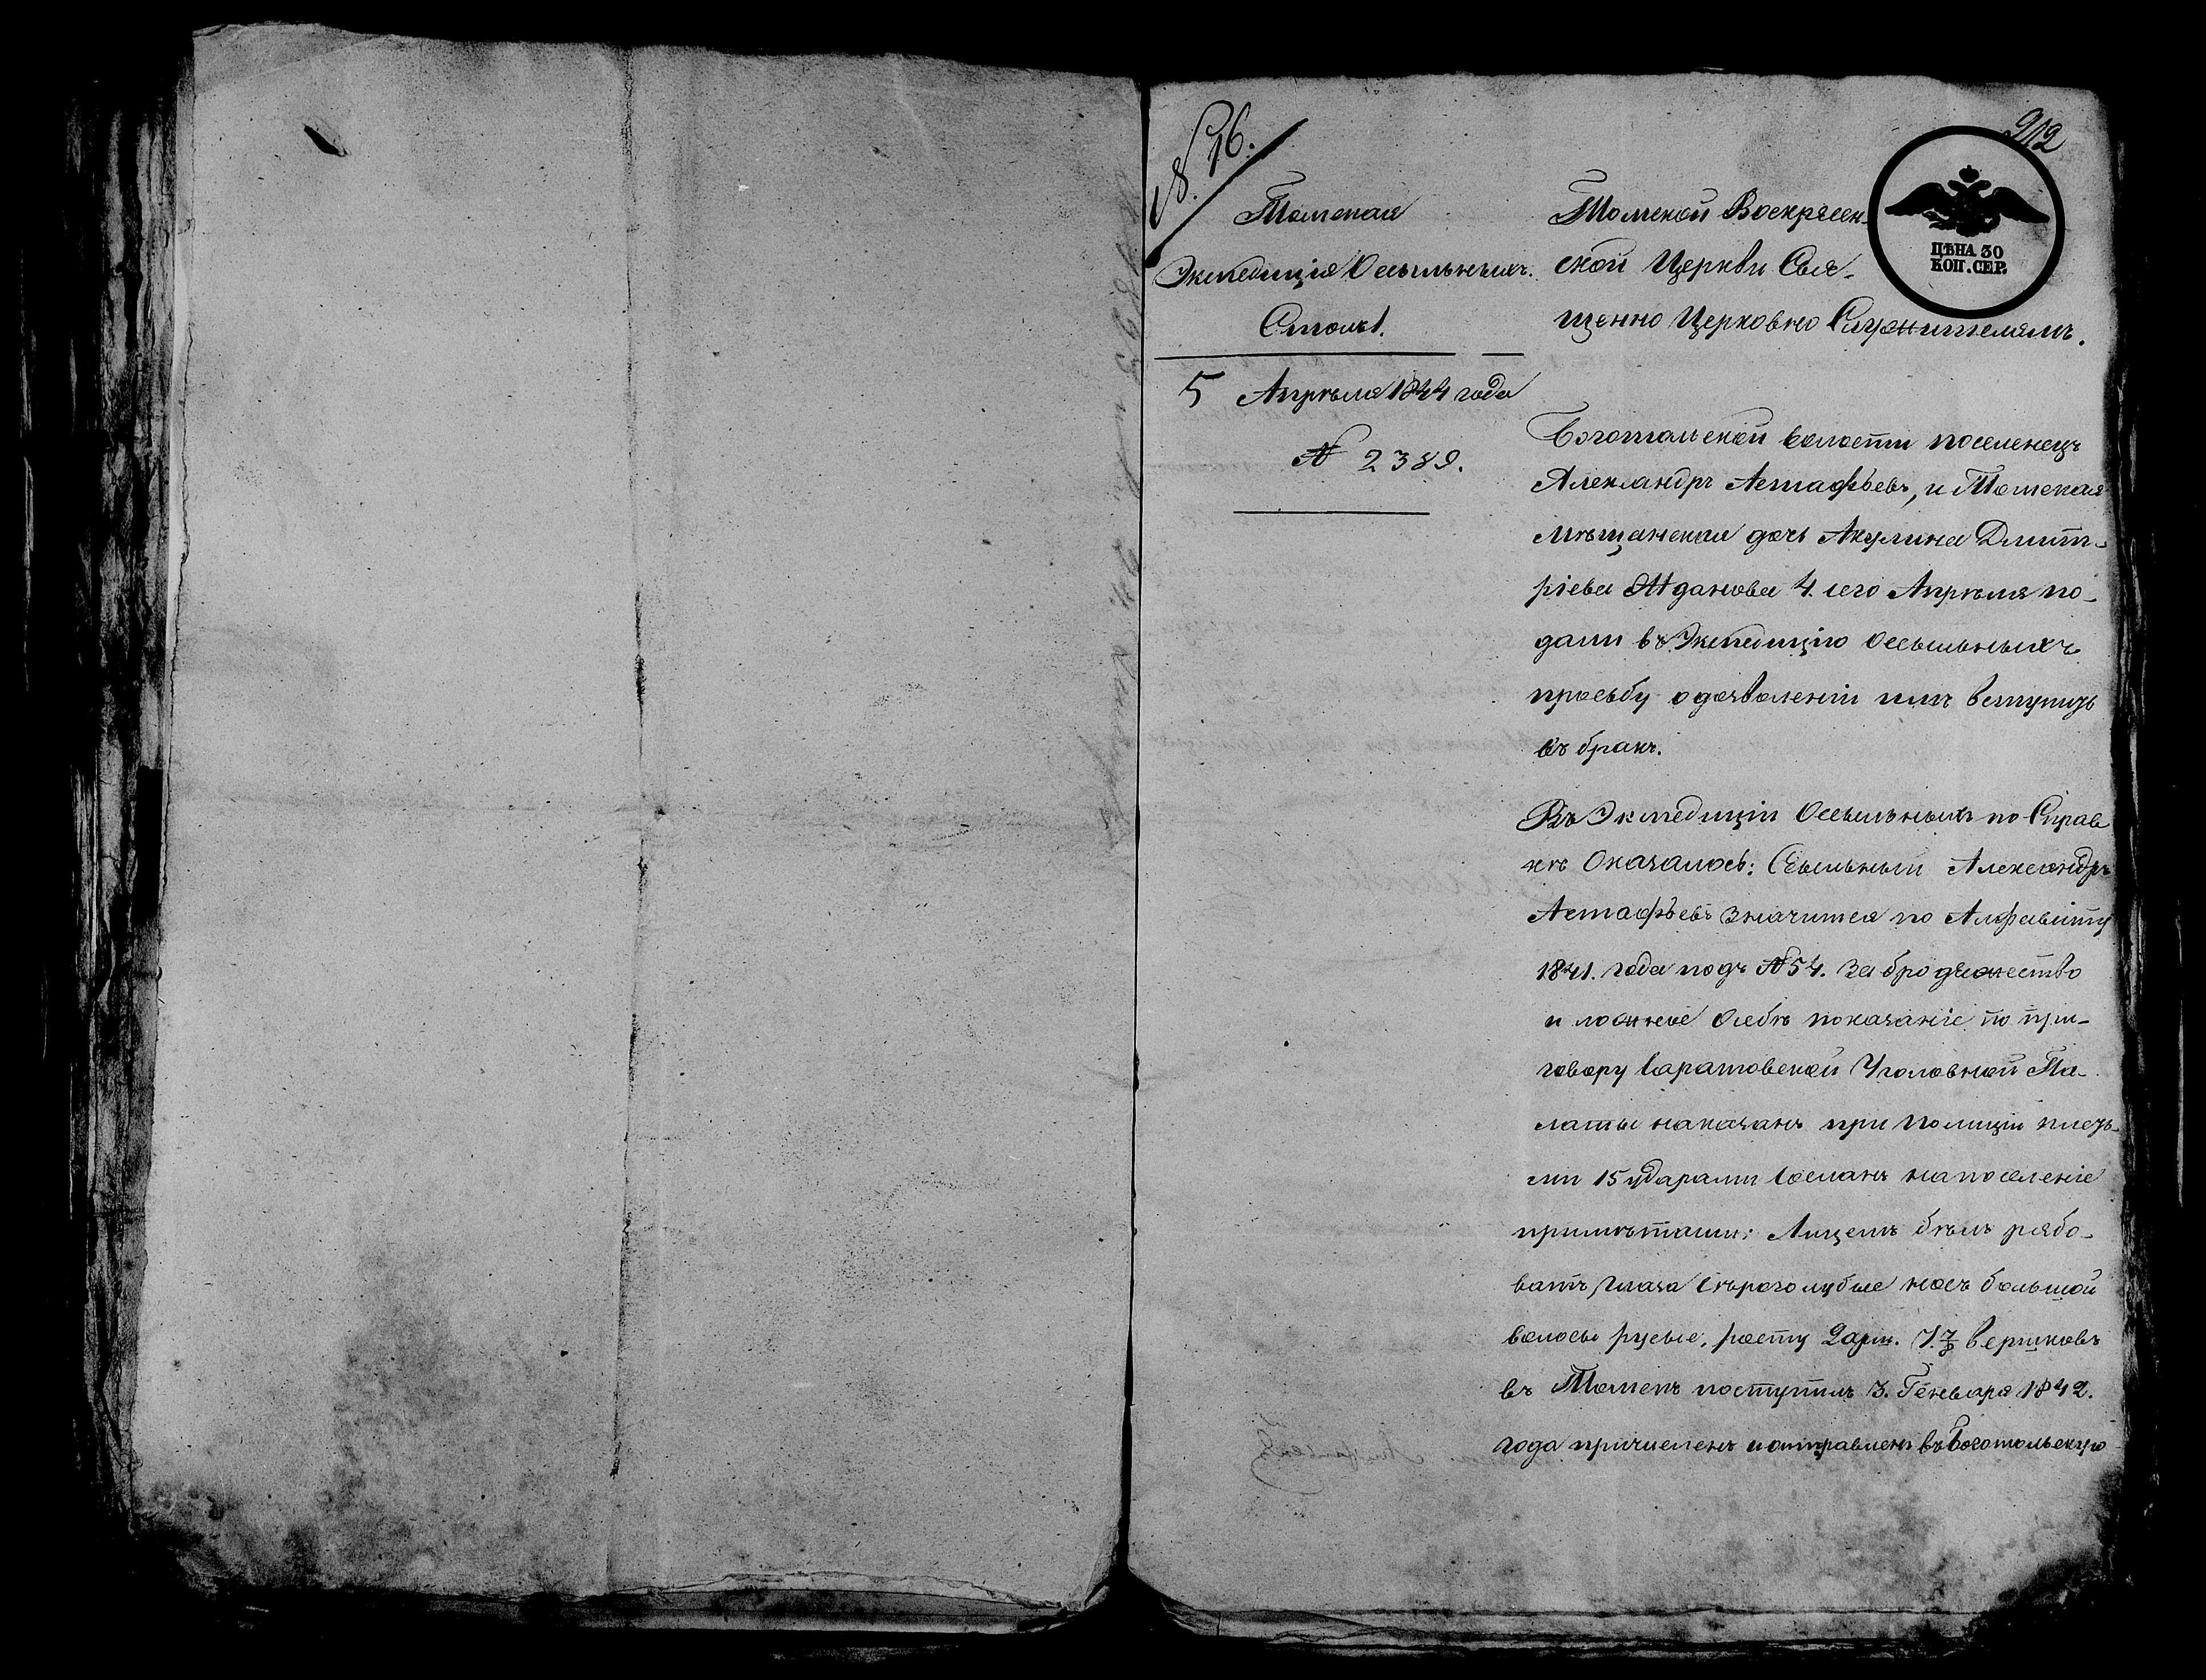 212
№ 16.
Томская
Экспедиція о Ссыльныхъ.
Столъ 1.
5 Апрѣля 1844 года
№ 2389.
Томской Воскресен-
ской Церкви Свя-
щенно Церковно Служителямъ.
ЦѢНА 30
КОП. СЕР.
Боготольской волости поселенецъ
Александръ Астафьевъ, и Томская
мѣщанская дочь Акулина Дмит-
ріева Жданова 4. сего Апрѣля по-
дали въ Экспедицію о Ссыльныхъ
просьбу о дозволеніи имъ вступить
въ бракъ.
Въ Экспедиціи о Ссыльныхъ по Справ
кѣ Оказалось: Ссыльный Александръ
Астафьевъ значится по Алфавиту
1841. года подъ № 54. За бродяжество
и ложное о себѣ показаніе по при-
говору Саратовской Уголовной Па-
латы наказанъ при Полиціи плеть-
ми 15 ударами сосланъ на поселеніе
примѣтами: Лицемъ бѣлъ рябо-
ватъ, глаза сѣроголубые носъ большой
волосы русые, росту 2 арш. 7 7/8 вершковъ
въ Томскъ поступилъ 3. Генваря 1842.
года причисленъ и отправленъ въ Боготольскую